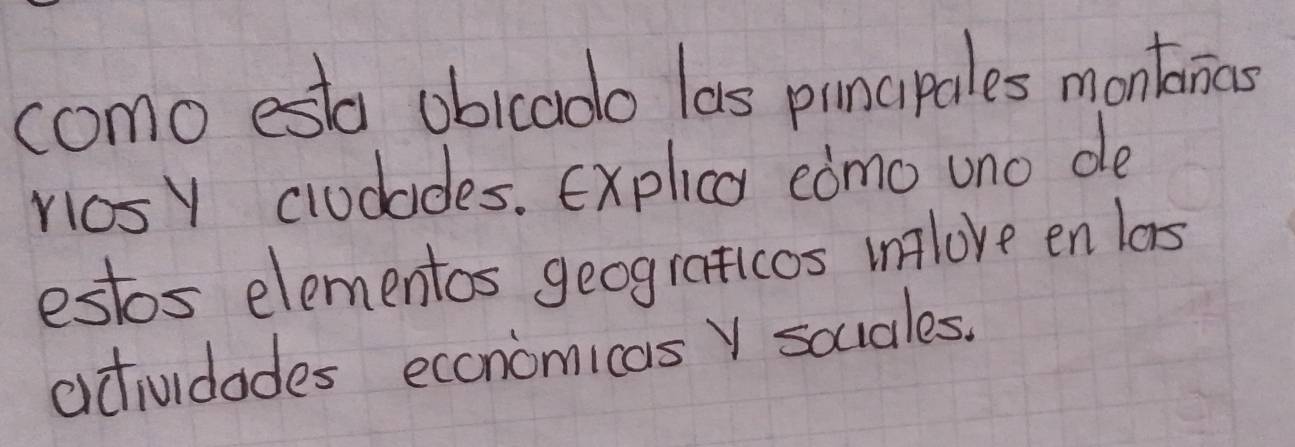 como esta obicado las principales montañas
rios y ciudades. Explica cómo uno de
estos elementos geograficos inflove en las
actividades económicas y sociales.